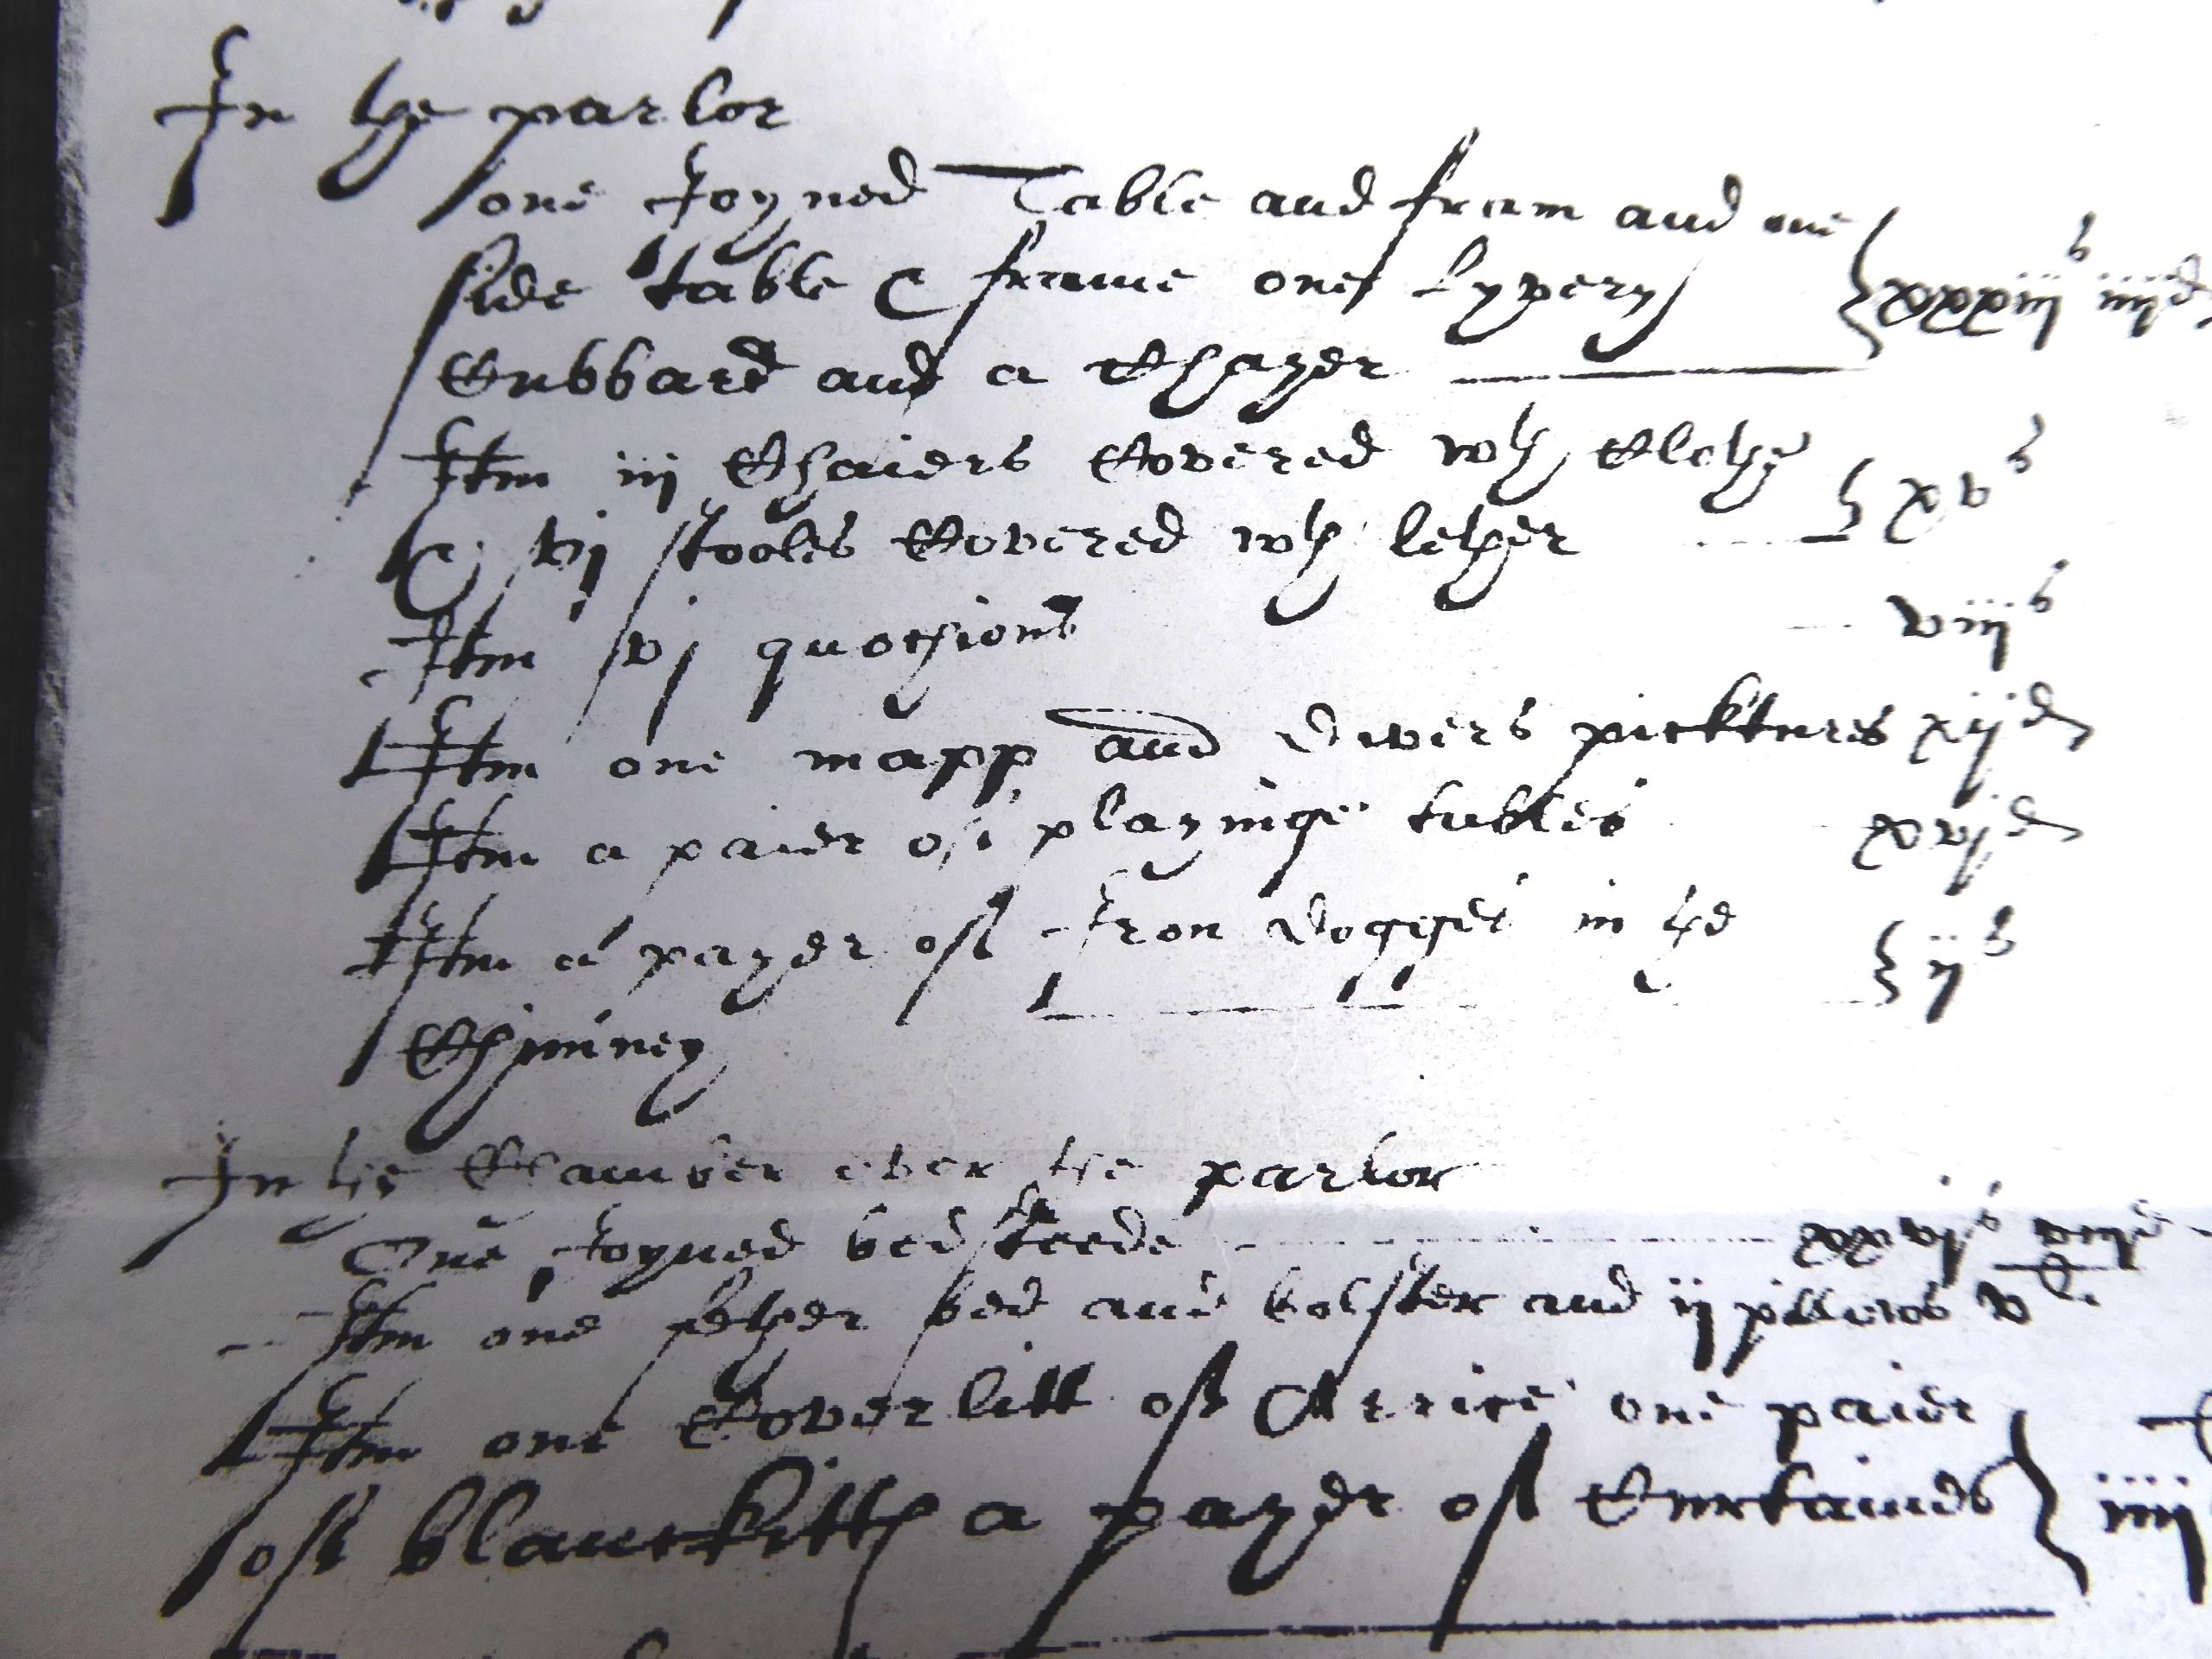 In the parlor
one Joyned Table and fram and one
side table & frame one lyvery xxxiij s iiij d
Cubbard and a Chayer
Itm iij Chaiers Covered wth Clothe
& vij stooles Covered wth lether xv s
Itm vj quoshions viij s
Itm one mapp and divers picktures xij d
Itm a paier of playinge tables xvj d
Itm a payer off Iron dogges in the ij s
Chimney
In the Chamber over the parlor
One Joyned bedsteede xxvj s viij d
Itm one fether bed and bolster and ij pillows v li
Itm one Coverlitt off Arrice one paier
off blanckitts a payer off Curtaines iiij